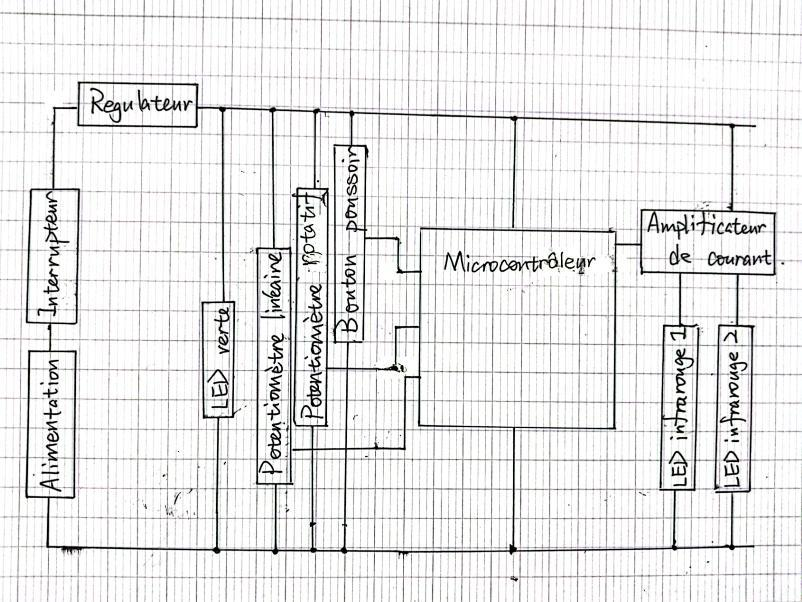 Regulateur
Interrupteur
Alimentation
LED verte
Potentiomètre linéaire
Potentiomètre rotatif
Bouton poussoir
Microcontrôleur
Amplificateur
de courant
LED infrarouge 1
LED infrarouge 2